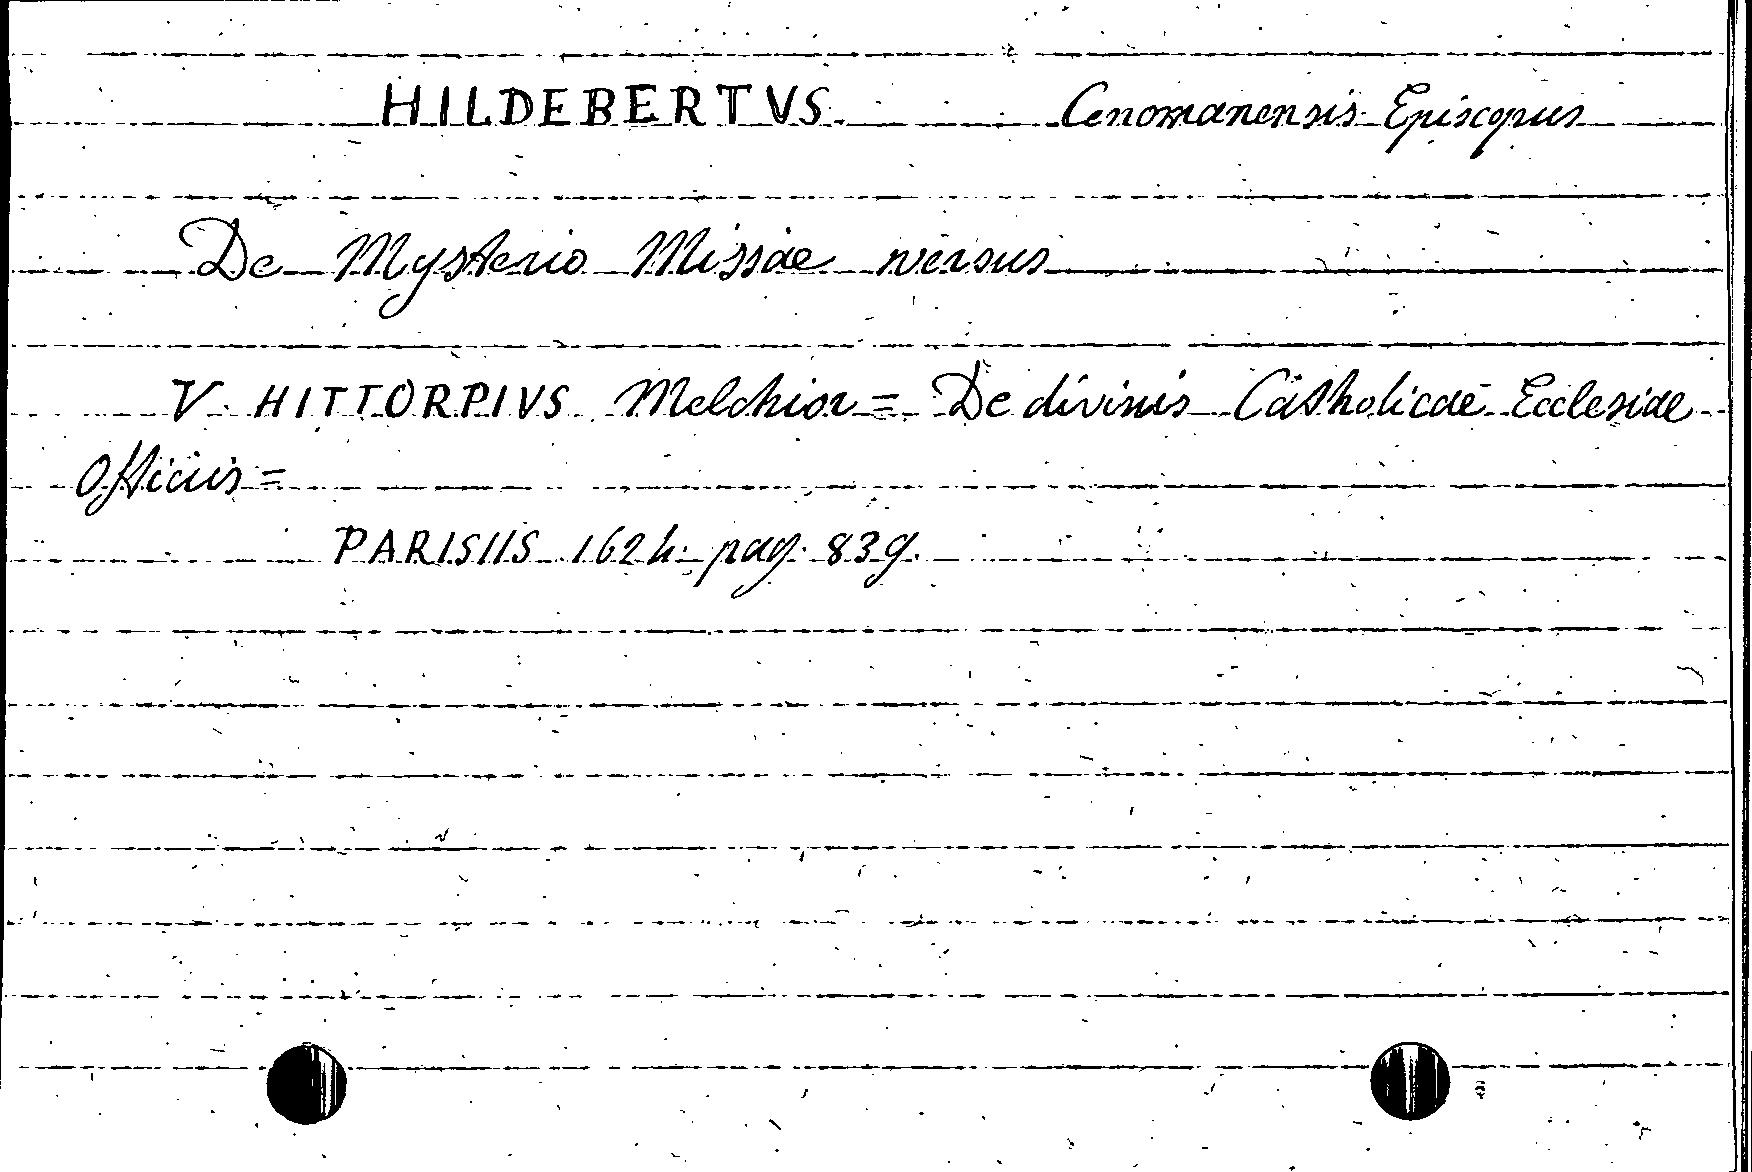 HILDEBERTVS. Cenomanensis Episcopus
De Mysterio Missae versus
V. HITTORPIVS Melchior = De divinis Catholicae Ecclesiae
Officiis =
PARISIIS 1624. pag. 839.